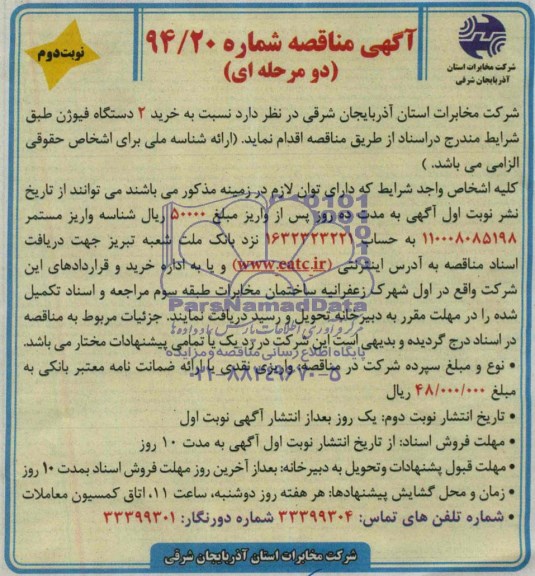 آگهی مناقصه شماره ۹۴/۲۰
(دو مرحله ای)
نوبت دوم
شرکت مخابرات استان
آذربایجان شرقی
شرکت مخابرات استان آذربایجان شرقی در نظر دارد نسبت به خرید ۲ دستگاه فیوژن طبق
شرایط مندرج دراسناد از طریق مناقصه اقدام نماید. (ارائه شناسه ملی برای اشخاص حقوقی
الزامی می باشد. )
کلیه اشخاص واجد شرایط که دارای توان لازم در زمینه مذکور می باشند می توانند از تاریخ
نشر نوبت اول آگهی به مدت ده روز پس از واریز مبلغ ۵۰۰۰۰ ریال شناسه واریز مستمر
۱۱۰۰۰۸۰۸۵۱۹۸ به حساب ۱۶۳۲۳۲۳۲۲۱ نزد بانک ملت شعبه تبریز جهت دریافت
اسناد مناقصه به آدرس اینترنتی (www.eatc.ir) و یا به اداره خرید و قراردادهای این
شرکت واقع در اول شهرک زعفرانیه ساختمان مخابرات طبقه سوم مراجعه و اسناد تکمیل
شده را در مهلت مقرر به دبیرخانه تحویل و رسید دریافت نمایند. جزئیات مربوط به مناقصه
در اسناد درج گردیده و بدیهی است این شرکت در رد یک یا تمامی پیشنهادات مختار می باشد.
• نوع و مبلغ سپرده شرکت در مناقصه: واریزی نقدی یا ارائه ضمانت نامه معتبر بانکی به
مبلغ ۴۸/۰۰۰/۰۰۰ ریال
• تاریخ انتشار نوبت دوم: یک روز بعداز انتشار آگهی نوبت اول
• مهلت فروش اسناد: از تاریخ انتشار نوبت اول آگهی به مدت ۱۰ روز
• مهلت قبول پشنهادات وتحویل به دبیرخانه: بعداز آخرین روز مهلت فروش اسناد بمدت ۱۰ روز
• زمان و محل گشایش پیشنهادها: هر هفته روز دوشنبه، ساعت ۱۱، اتاق کمسیون معاملات
• شماره تلفن های تماس: ۳۳۳۹۹۳۰۴ شماره دورنگار: ۳۳۳۹۹۳۰۱
شرکت مخابرات استان آذربایجان شرقی
ParsNamadData
پایگاه اطلاع رسانی مناقصه و مزایده
۰۲۱-۸۸۳۴۹۶۷۰-۵